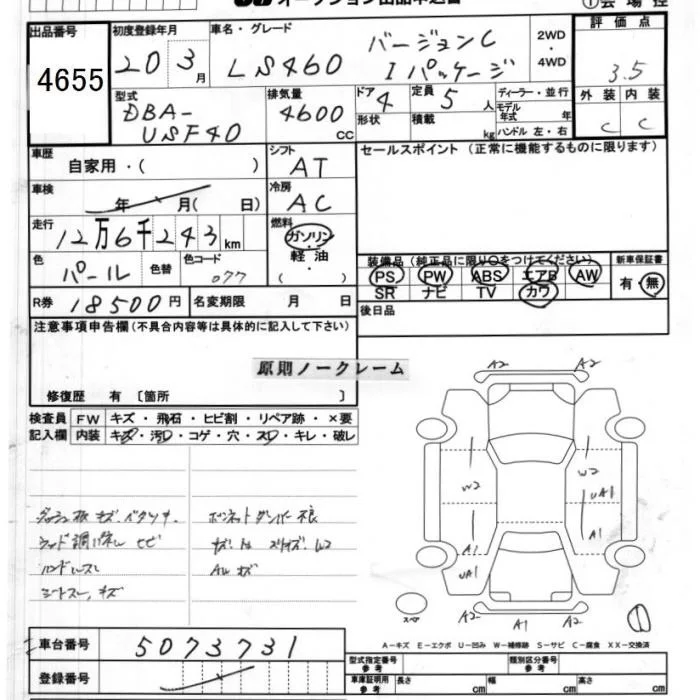 オークション出品申込書
出品番号 初度登録年月 車名・グレード 2WD・4WD 評価点
4655 20 3月 LS460 バージョンC Iパッケージ 3.5
外装 内装
C C
型式 排気量 ドア 定員 ディーラー・並行
DBA-USF40 4600 CC 4 5人 モデル年式 年
形状 積載 kg ハンドル 左・右
車歴 シフト セールスポイント (正常に機能するものに限ります)
自家用・( ) AT
車検 冷房
年 月( 日) AC
走行 燃料
12万6千243km ガソリン・軽油 ( )
色 パール 色替 色コード 077
装備品 (純正品に限り○をつけてください) 新車保証書
PS PW ABS エアB AW 有・無
SR ナビ TV カワ
R券 18500円 名変期限 月 日
後日品
注意事項申告欄(不具合内容等は具体的に記入して下さい)
原則ノークレーム
修復歴 有 [箇所 ]
検査員 FW キズ・飛石・ヒビ割・リペア跡・×要
記入欄 内装 キズ・汚・コゲ・穴・スレ・キレ・破レ
A2 A2
W2 W2
UA1
A1 A1
UA1
A2 A1 A2
スペア
A-キズ E-エクボ U-凹み W-補修跡 S-サビ C-腐食 XX-交換済
ボンネットダンパー不良
ハンドルスレ
AWキズ
車台番号 5073731
登録番号
型式指定番号 参考 類別区分番号 参考
車庫証明用 参考 長さ cm 幅 cm 高さ cm